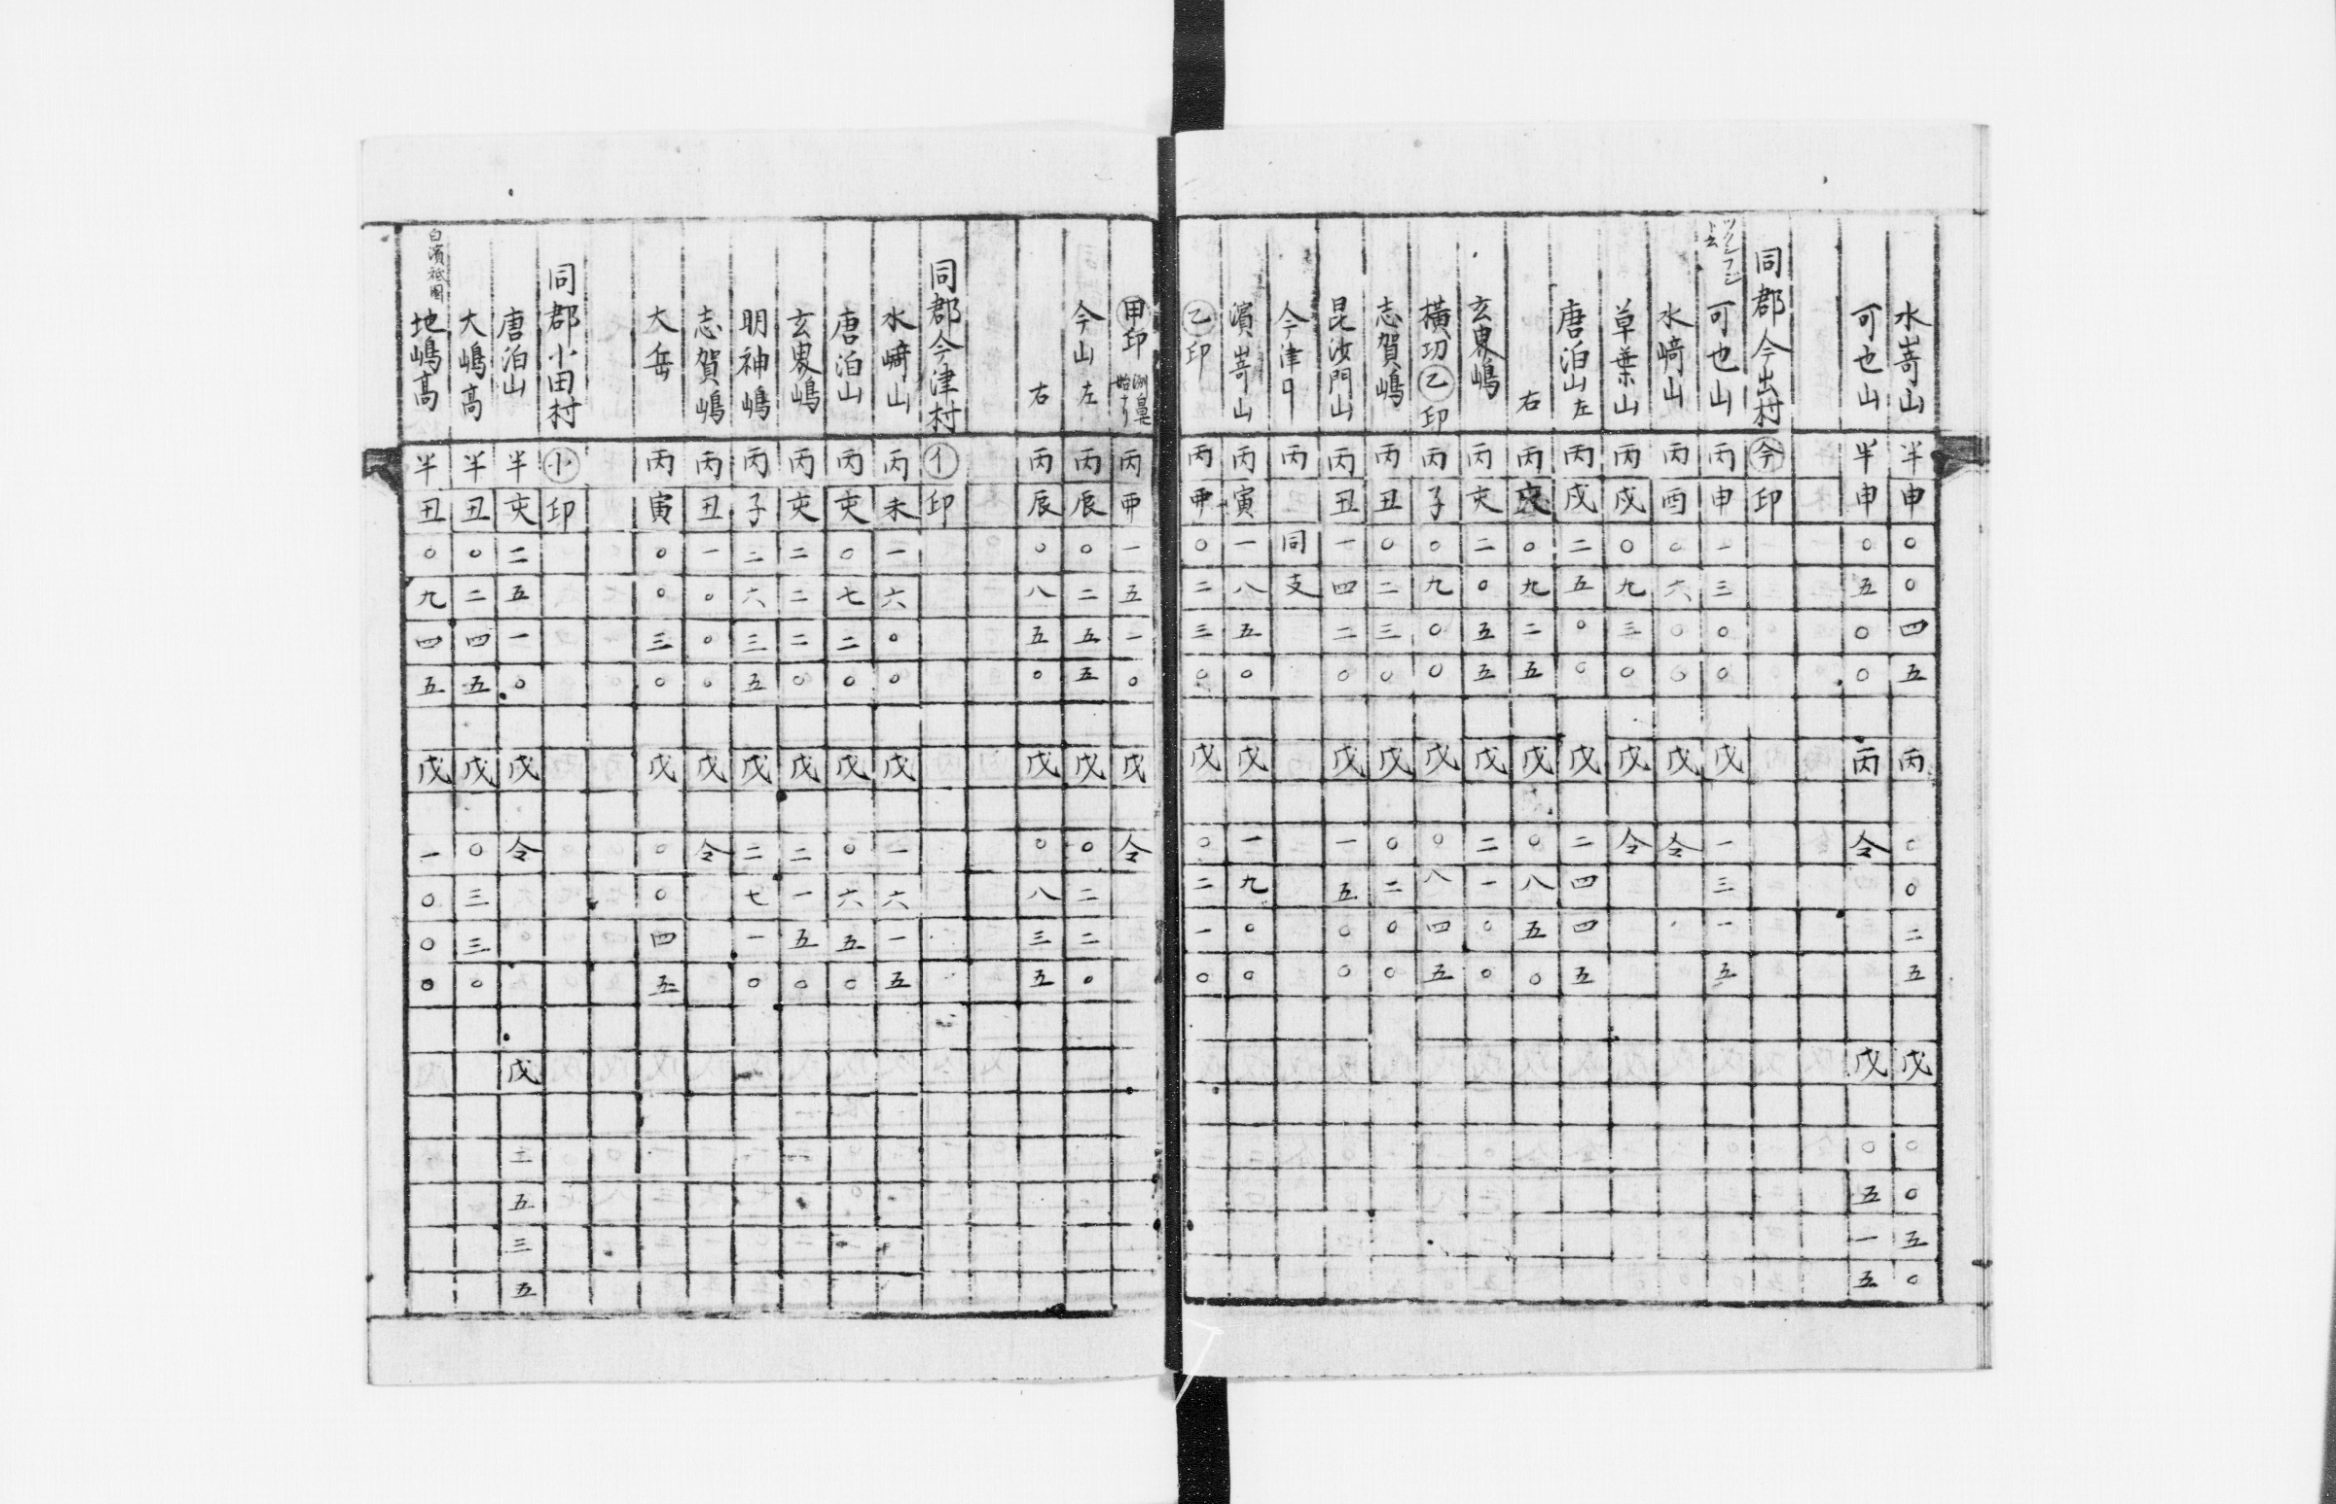 水嵜山 半申〇〇四五 丙〇〇二五 戊〇〇五〇
可也山 半申〇五〇〇 丙令 戊〇五一五
同郡今出村 今印
ツクシフジト云 可也山 丙申一三〇〇 戊一三一五
水﨑山 丙酉〇六〇〇 戊令
草葉山 丙戌〇九三〇 戊令
唐泊山左 丙戌二五〇〇 戊二四四五
右 丙亥〇九二五 戊〇八五〇
玄界嶋 丙亥二〇五五 戊二一〇〇
横切乙印 丙子〇九〇〇 戊〇八四五
志賀嶋 丙丑〇二三〇 戊〇二〇〇
昆汝門山 丙丑一四二〇 戊一五〇〇
今津口 丙 同支
濵嵜山 丙寅一八五〇 戊一九〇〇
乙印 丙申〇二三〇 戊〇二一〇
甲印 渕鼻始ナリ 丙申一五一〇 戊令
今山左 丙辰〇二五五 戊〇二二〇
右 丙辰〇八五〇 戊〇八三五
同郡今津村 イ印
水﨑山 丙未一六〇〇 戊一六一五
唐泊山 丙亥〇七二〇 戊〇六五〇
玄界嶋 丙亥二二二〇 戊二一五〇
明神嶋 丙子二六三五 戊二七一〇
志賀嶋 丙丑一〇〇〇 戊令
大岳 丙寅〇〇三〇 戊〇〇四五
同郡小田村 小印
唐泊山 半亥二五一〇 戊令 戊二五三五
大嶋高 半丑〇二四五 戊〇三三〇
白濱祗園 地嶋高 半丑〇九四五 戊一〇〇〇